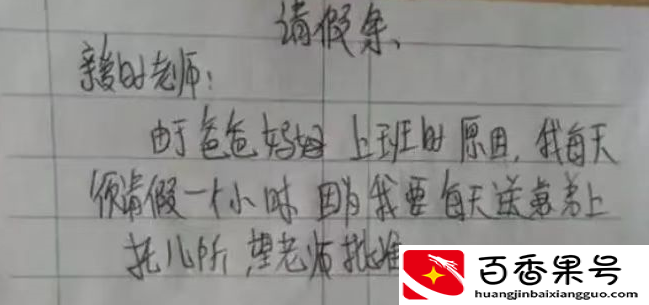 请假条、
亲爱的老师:
由于爸爸妈妈上班的原因,我每天
须请假一个小时 因为我要每天送弟弟上
托儿所,望老师批准
百香果号
huangjinbaixiangguo.com